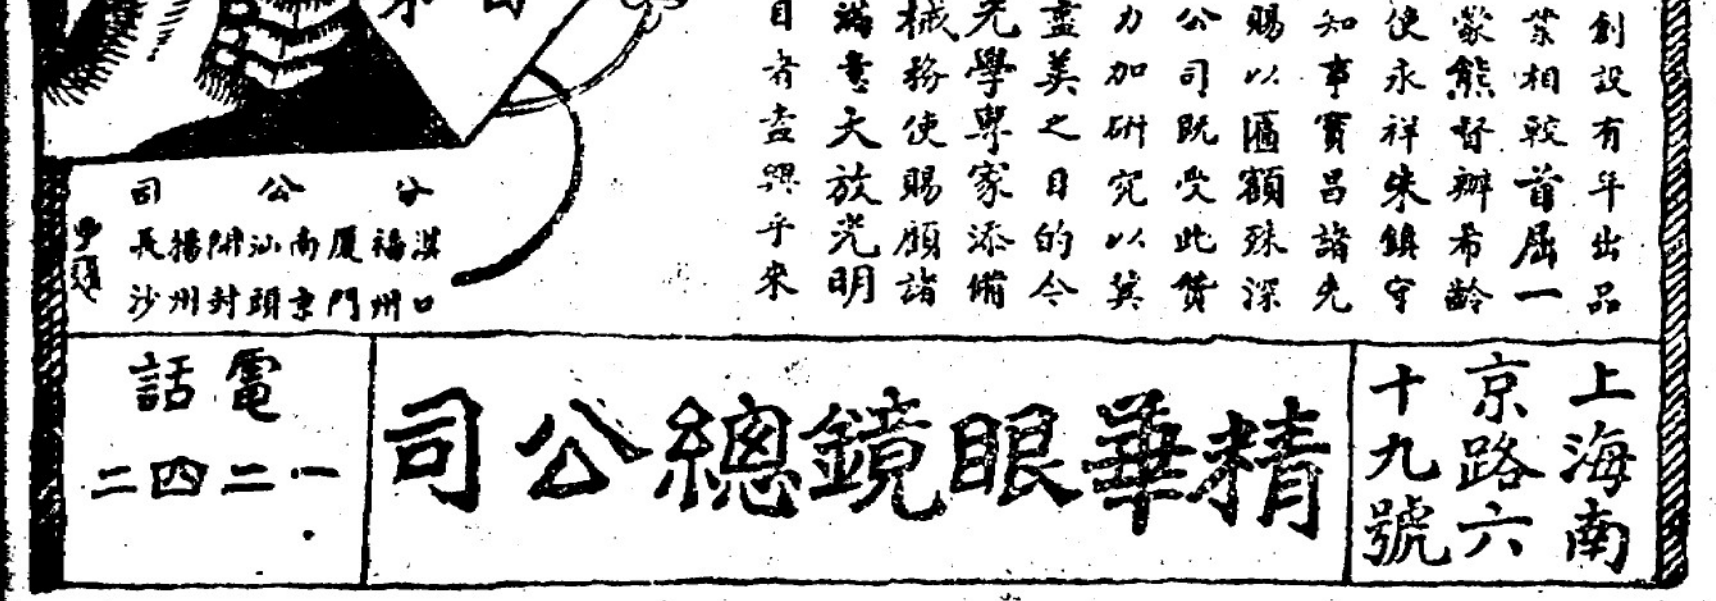 創設有年出品
業相較首屈一
蒙熊督辦希齡
使永祥朱鎮守
知事寶昌諸先
賜以匾額殊深
公司既受此贊
力加研究以冀
盡美之目的今
光學專家添備
械務使賜顧諸
滿意大放光明
目者盍興乎來
分公司
漢口
福州
廈門
南京
汕頭
開封
揚州
長沙
上海南
京路六
十九號
精華眼鏡總公司
電話
一二四二